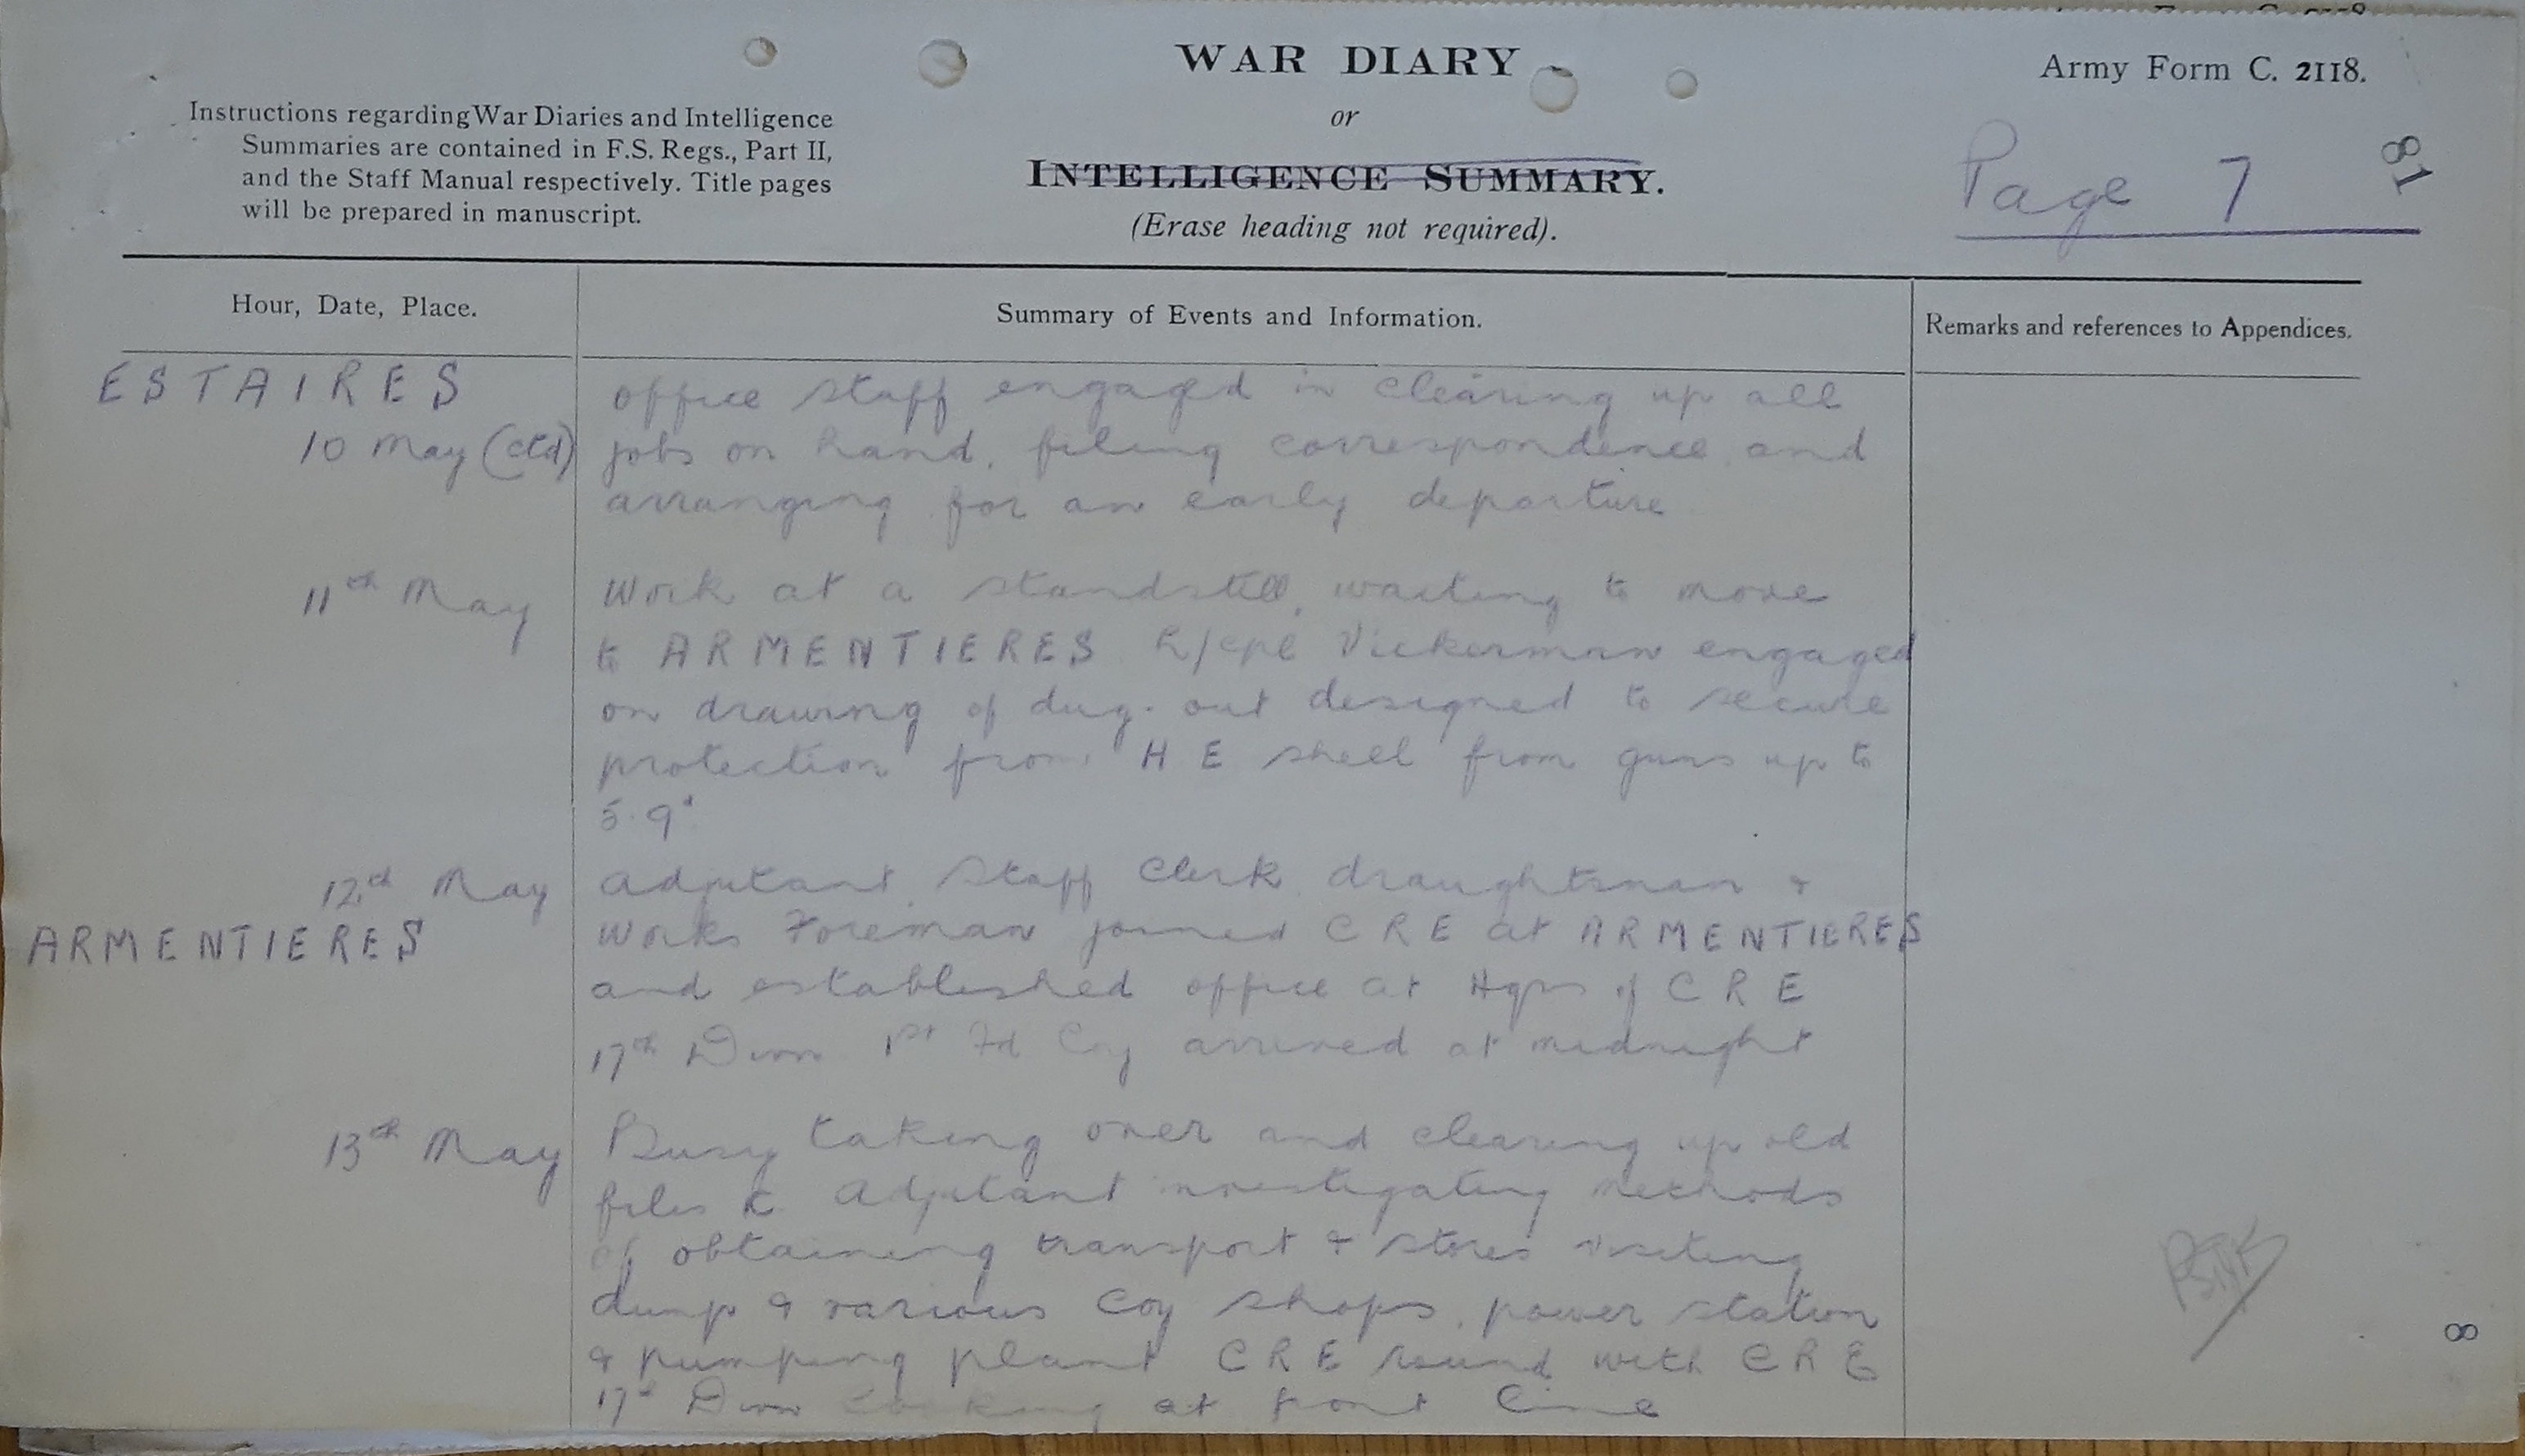 WAR DIARY
or
INTELLIGENCE SUMMARY.
(Erase heading not required).
Army Form C. 2118.
Instructions regarding War Diaries and Intelligence
Summaries are contained in F.S. Regs., Part II,
and the Staff Manual respectively. Title pages
will be prepared in manuscript.
Page 7
81
Hour, Date, Place.
Summary of Events and Information.
Remarks and references to Appendices.
ESTAIRES
10 May (ctd)
office staff engaged in clearing up all
jobs on hand, filing correspondence and
arranging for an early departure
11th May
Work at a standstill, waiting to move
to ARMENTIERES. L/cpl Vickerman engaged
on drawing of dug-out designed to secure
protection from H E shell from guns up to
5.9"
12th May
ARMENTIERES
Adjutant, Staff Clerk, draughtsman &
Works Foreman joined CRE at ARMENTIERES
and established office at Hqrs of CRE
17th Divn 1st Fd Coy arrived at midnight
13th May
Busy taking over and clearing up old
files &c Adjutant investigating methods
of obtaining transport & stores visiting
dump & various Coy shops, power station
& pumping plant CRE round with CRE
17th Divn looking at front line
8